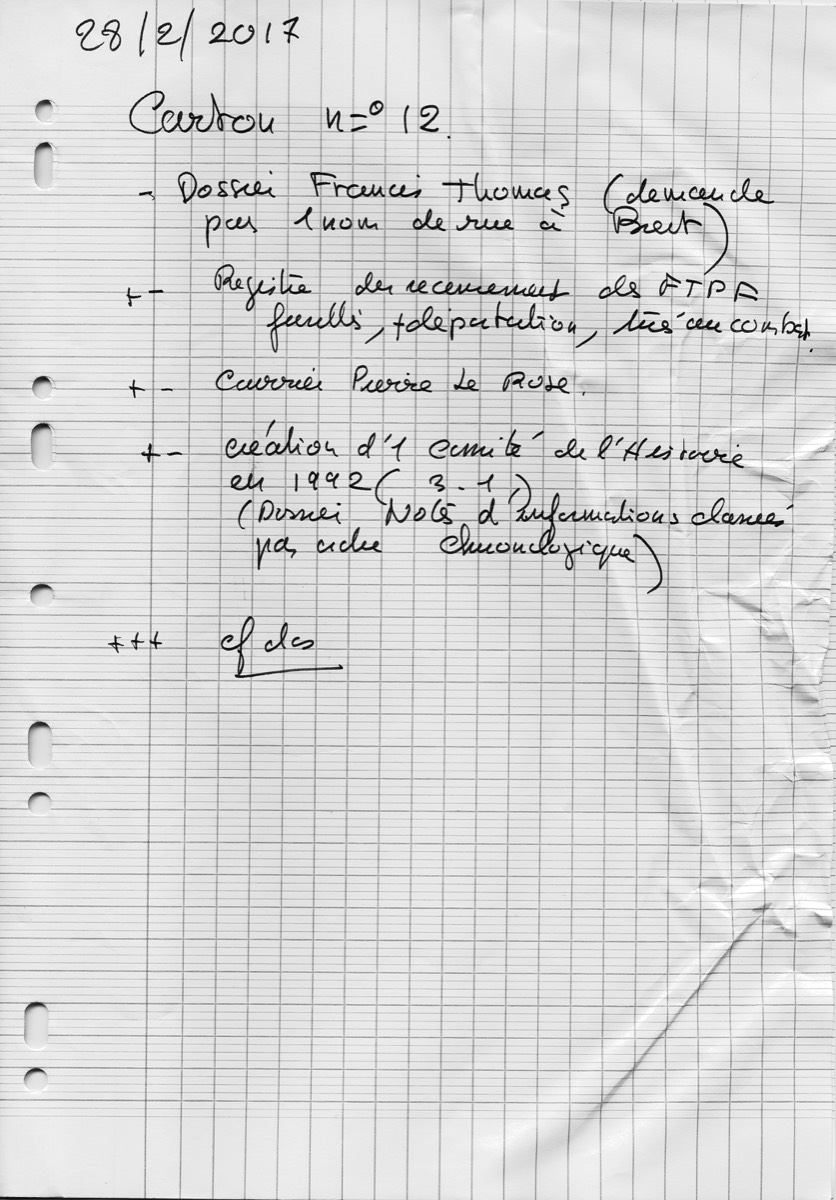 28/2/2017
Carton n° 12.
- Dossier Francis Thomas (demande
par 1 nom de rue à Brest)
+ - Registre des recensement des FTPF
fusillés, + déportation, tués au combat.
+ - Courrier Pierre Le Rose.
+ - création d'1 comité de l'Histoire
en 1992 ( 3-1 )
(Dossier Notes d'Informations classées
par ordre chronologique)
+++ cf dos